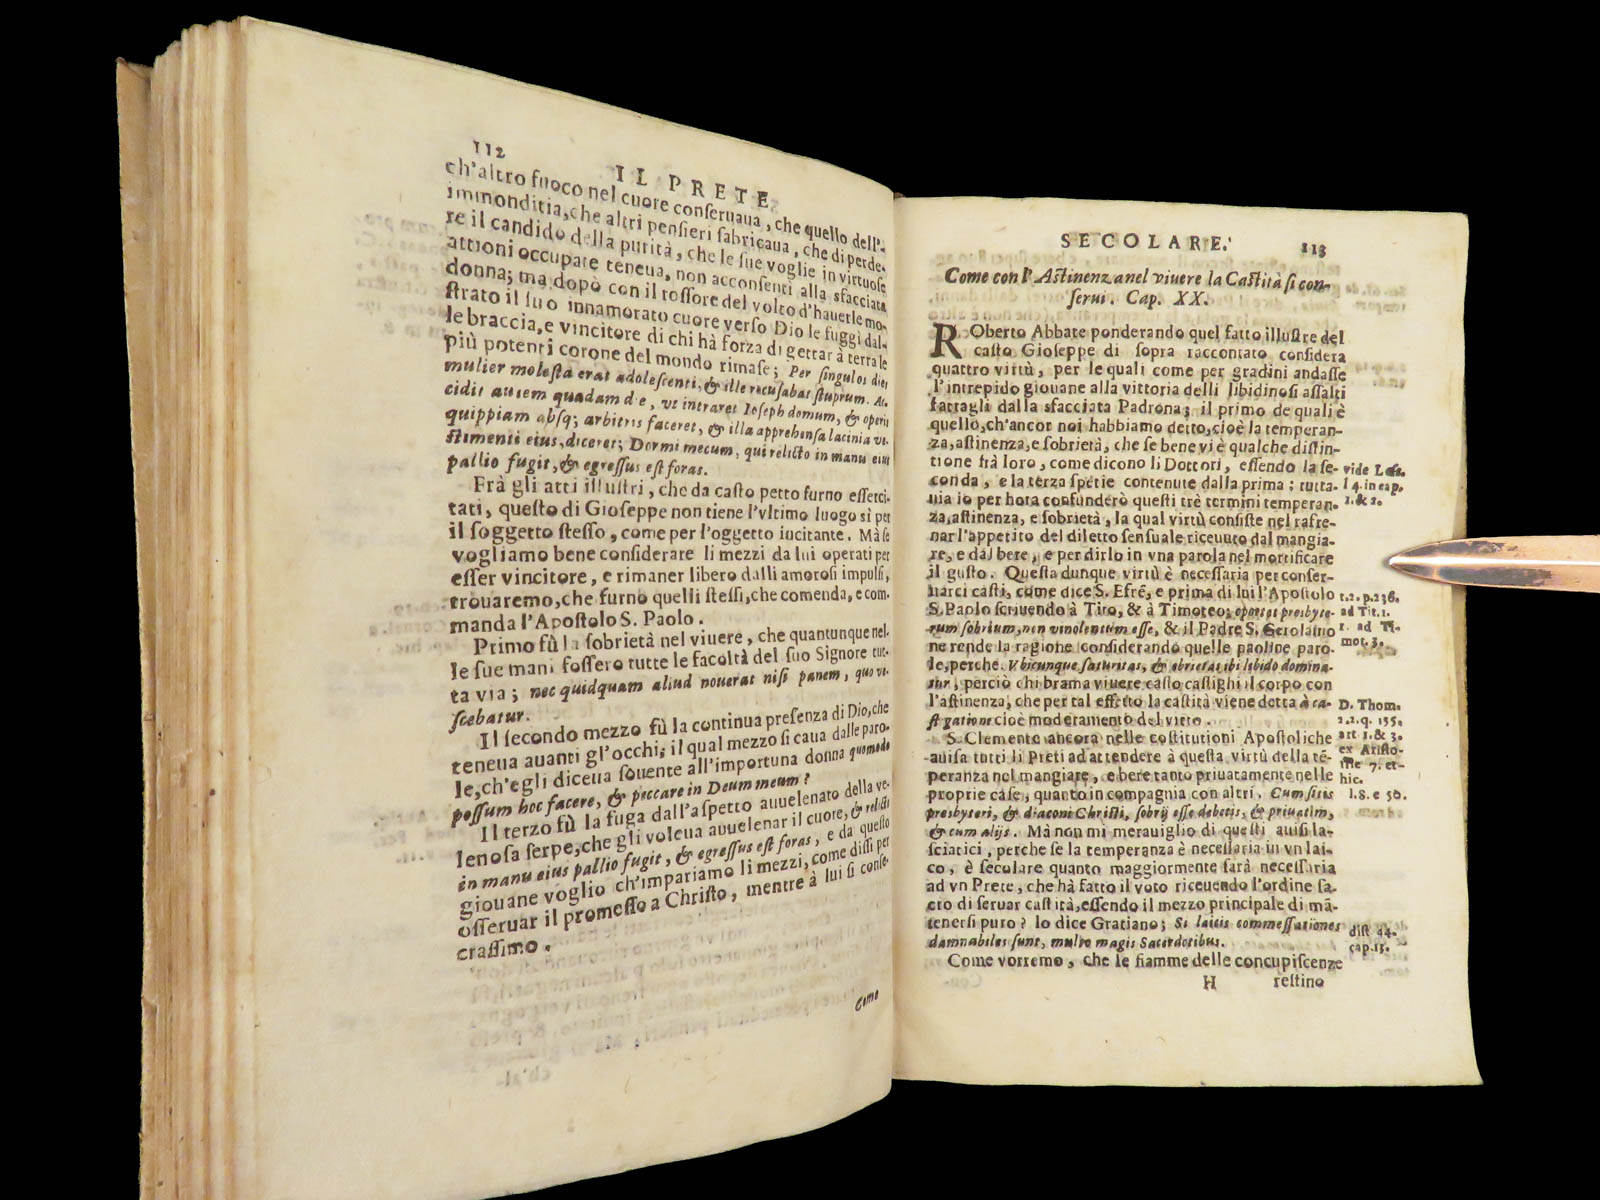 112
IL PRETE
ch'altro fuoco nel cuore conſeruaua, che quello dell'-
immonditia, che altri penſieri fabricaua, che di perde-
re il candido della purità, che le ſue voglie in virtuoſe
attioni occupate teneua, non acconſenti alla sfacciata
donna; ma dopò con il roſſore del volto d'hauerle mo-
ſtrato il ſuo innamorato cuore verſo Dio le fuggì dal-
le braccia, e vincitore di chi hà forza di gettar à terra le
più potenti corone del mondo rimaſe; Per ſingulos dies
mulier moleſta erat adoleſcenti, & ille recuſabat ſtuprum. Ac-
cidit autem quadam die, vt intraret Ioſeph domum, & operis
quippiam abſq; arbitris faceret, & illa apprehenſa lacinia ve-
ſtimenti eius, diceret; Dormi mecum, qui relicto in manu eius
pallio fugit, & egreſſus eſt foras.
Frà gli atti illuſtri, che da caſto petto furno eſſerci-
tati, queſto di Gioſeppe non tiene l'vltimo luogo sì per
il ſoggetto ſteſſo, come per l'oggetto incitante. Mà ſe
vogliamo bene conſiderare li mezzi da lui operati per
eſſer vincitore, e rimaner libero dalli amoroſi impulſi,
trouaremo, che furno quelli ſteſſi, che comenda, e com-
manda l'Apoſtolo S. Paolo.
Primo fù la ſobrietà nel viuere, che quantunque nel-
le ſue mani foſſero tutte le facoltà del ſuo Signore tut-
ta via; nec quidquam aliud nouerat niſi panem, quo ve-
ſcebatur.
Il ſecondo mezzo fù la continua preſenza di Dio, che
teneua auanti gl'occhi, il qual mezzo ſi caua dalle paro-
le, ch'egli diceua ſouente all'importuna donna quomodo
poſſum hoc facere, & peccare in Deum meum?
Il terzo fù la fuga dall'aſpetto auuelenato della ve-
lenoſa ſerpe, che gli voleua auuelenar il cuore, & relicto
in manu eius pallio fugit, & egreſſus eſt foras, e da queſto
giouane voglio ch'impariamo li mezzi, come diſſi per
oſſeruar il promeſſo a Chriſto, mentre à lui ſi conſe-
craſſimo.
Come
SECOLARE.
113
Come con l'Aſtinenza nel viuere la Caſtità ſi con-
ſerui. Cap. XX.
ROberto Abbate ponderando quel fatto illuſtre del
caſto Gioſeppe di ſopra raccontato conſidera
quattro virtù, per le quali come per gradini andaſſe
l'intrepido giouane alla vittoria delli libidinoſi aſſalti
fattagli dalla sfacciata Padrona; il primo de quali è
quello, ch'ancor noi habbiamo detto, cioè la temperan-
za, aſtinenza, e ſobrietà, che ſe bene vi è qualche diſtin-
tione frà loro, come dicono li Dottori, eſſendo la ſe-
conda, e la terza ſpetie contenute dalla prima; tutta-
uia io per hora confunderò queſti trè termini temperan-
za, aſtinenza, e ſobrietà, la qual virtù conſiſte nel rafre-
nar l'appetito del diletto ſenſuale riceuuto dal mangia-
re, e dal bere, e per dirlo in vna parola nel mortificare
il guſto. Queſta dunque virtù è neceſſaria per conſer-
uarci caſti, come dice S. Efrē, e prima di lui l'Apoſtolo
S. Paolo ſcriuendo à Tito, & à Timoteo; oportet presbyte-
rum ſobrium, non vinolentum eſſe, & il Padre S. Gerolamo
ne rende la ragione conſiderando quelle paoline paro-
le, perche. Vbicunque ſaturitas, & ebrietas ibi libido domina-
tur, perciò chi brama viuere caſto caſtighi il corpo con
l'aſtinenza, che per tal effetto la caſtità viene detta à ca-
ſtigatione cioè moderamento del vitto.
S. Clemente ancora nelle coſtitutioni Apoſtoliche
auiſa tutti li Preti ad attendere à queſta virtù della tē-
peranza nel mangiare, e bere tanto priuatamente nelle
proprie caſe, quanto in compagnia con altri. Cum ſitis
presbyteri, & diaconi Chriſti, ſobrij eſſe debetis, & priuatim,
& cum alijs. Mà non mi merauiglio di queſti auiſi la-
ſciatici, perche ſe la temperanza è neceſſaria in vn lai-
co, è ſecolare quanto maggiormente ſarà neceſſaria
ad vn Prete, che hà fatto il voto riceuendo l'ordine ſa-
cro di ſeruar caſtità, eſſendo il mezzo principale di mā-
tenerſi puro? lo dice Gratiano; Si laicis commeſſationes
damnabiles ſunt, multo magis Sacerdotibus.
Come vorremo, che le fiamme delle concupiſcenze
H
reſtino
vide Leſs.
l 4. in cap.
1. & 2.
t. 2. p. 236.
ad Tit. 1.
1. ad Ti-
mot. 3.
D. Thom.
2. 2. q. 155.
art 1. & 3.
ex Ariſto-
tile 7. et-
hic.
l. 8. c 50.
diſt 44.
cap. 13.